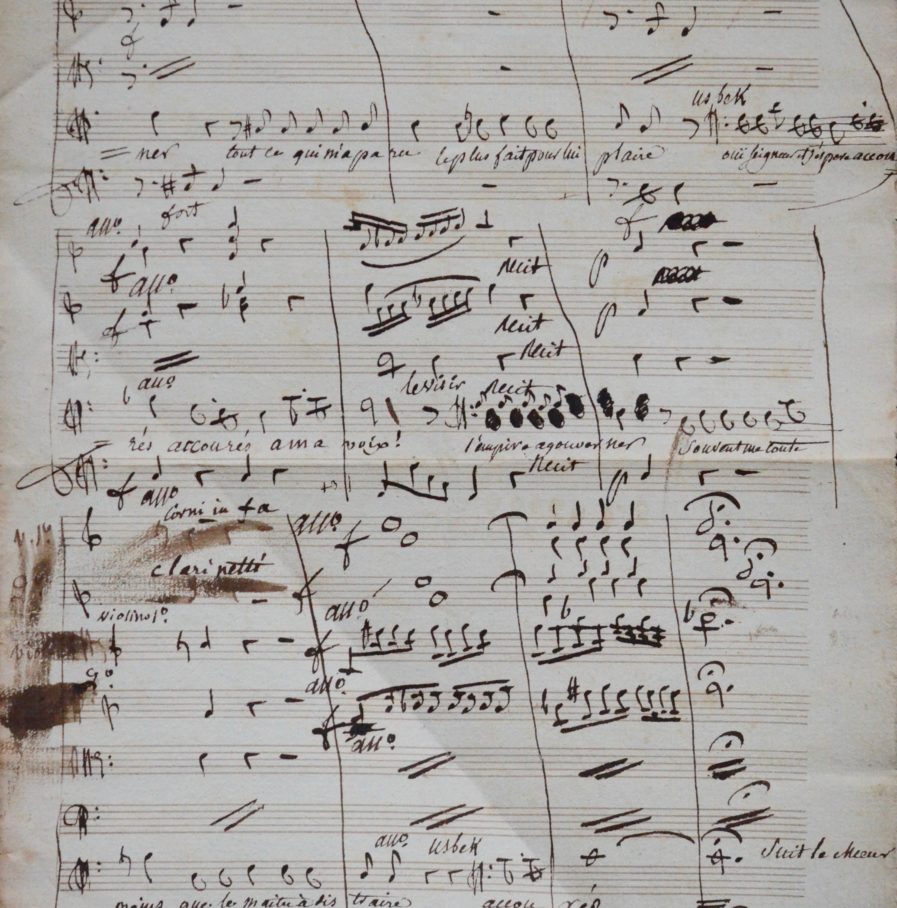 usbek
= ner tout ce qui m'a pa ru le plus fait pour lui plaire oüi seigneur et j'espere accou
fort
allo.
récit
allo
récit
récit
allo
le visir récit
= rés accourés a ma voix! l'empire a gouverner souvent me coute
récit
allo
Corni in fa
allo.
clarinetti
allo
violino 1o.
allo.
2o.
allo.
allo. usbek
Suit le Chœur
moins que le maitre a dis traire accou rés